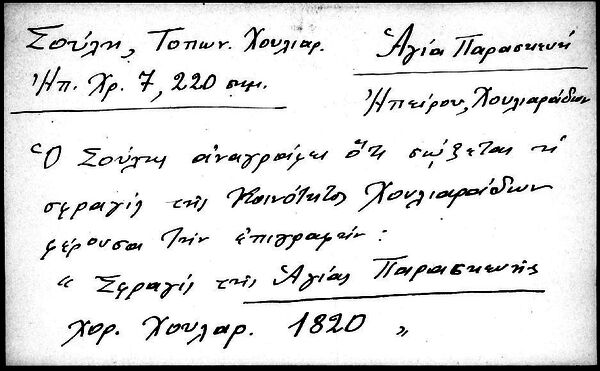 Σούλη, Τοπων. Χουλιαρ.
Ἠπ. Χρ. 7, 220 σημ.
Ἁγία Παρασκευή
Ἠπείρου, Χουλιαράδων
Ὁ Σούλης ἀναγράφει ὅτι σῴζεται ἡ
σφραγίς τῆς Κοινότητος Χουλιαράδων
φέρουσα τὴν ἐπιγραφήν:
" Σφραγὶς τῆς Ἁγίας Παρασκευῆς
χορ. Χουλαρ. 1820 "